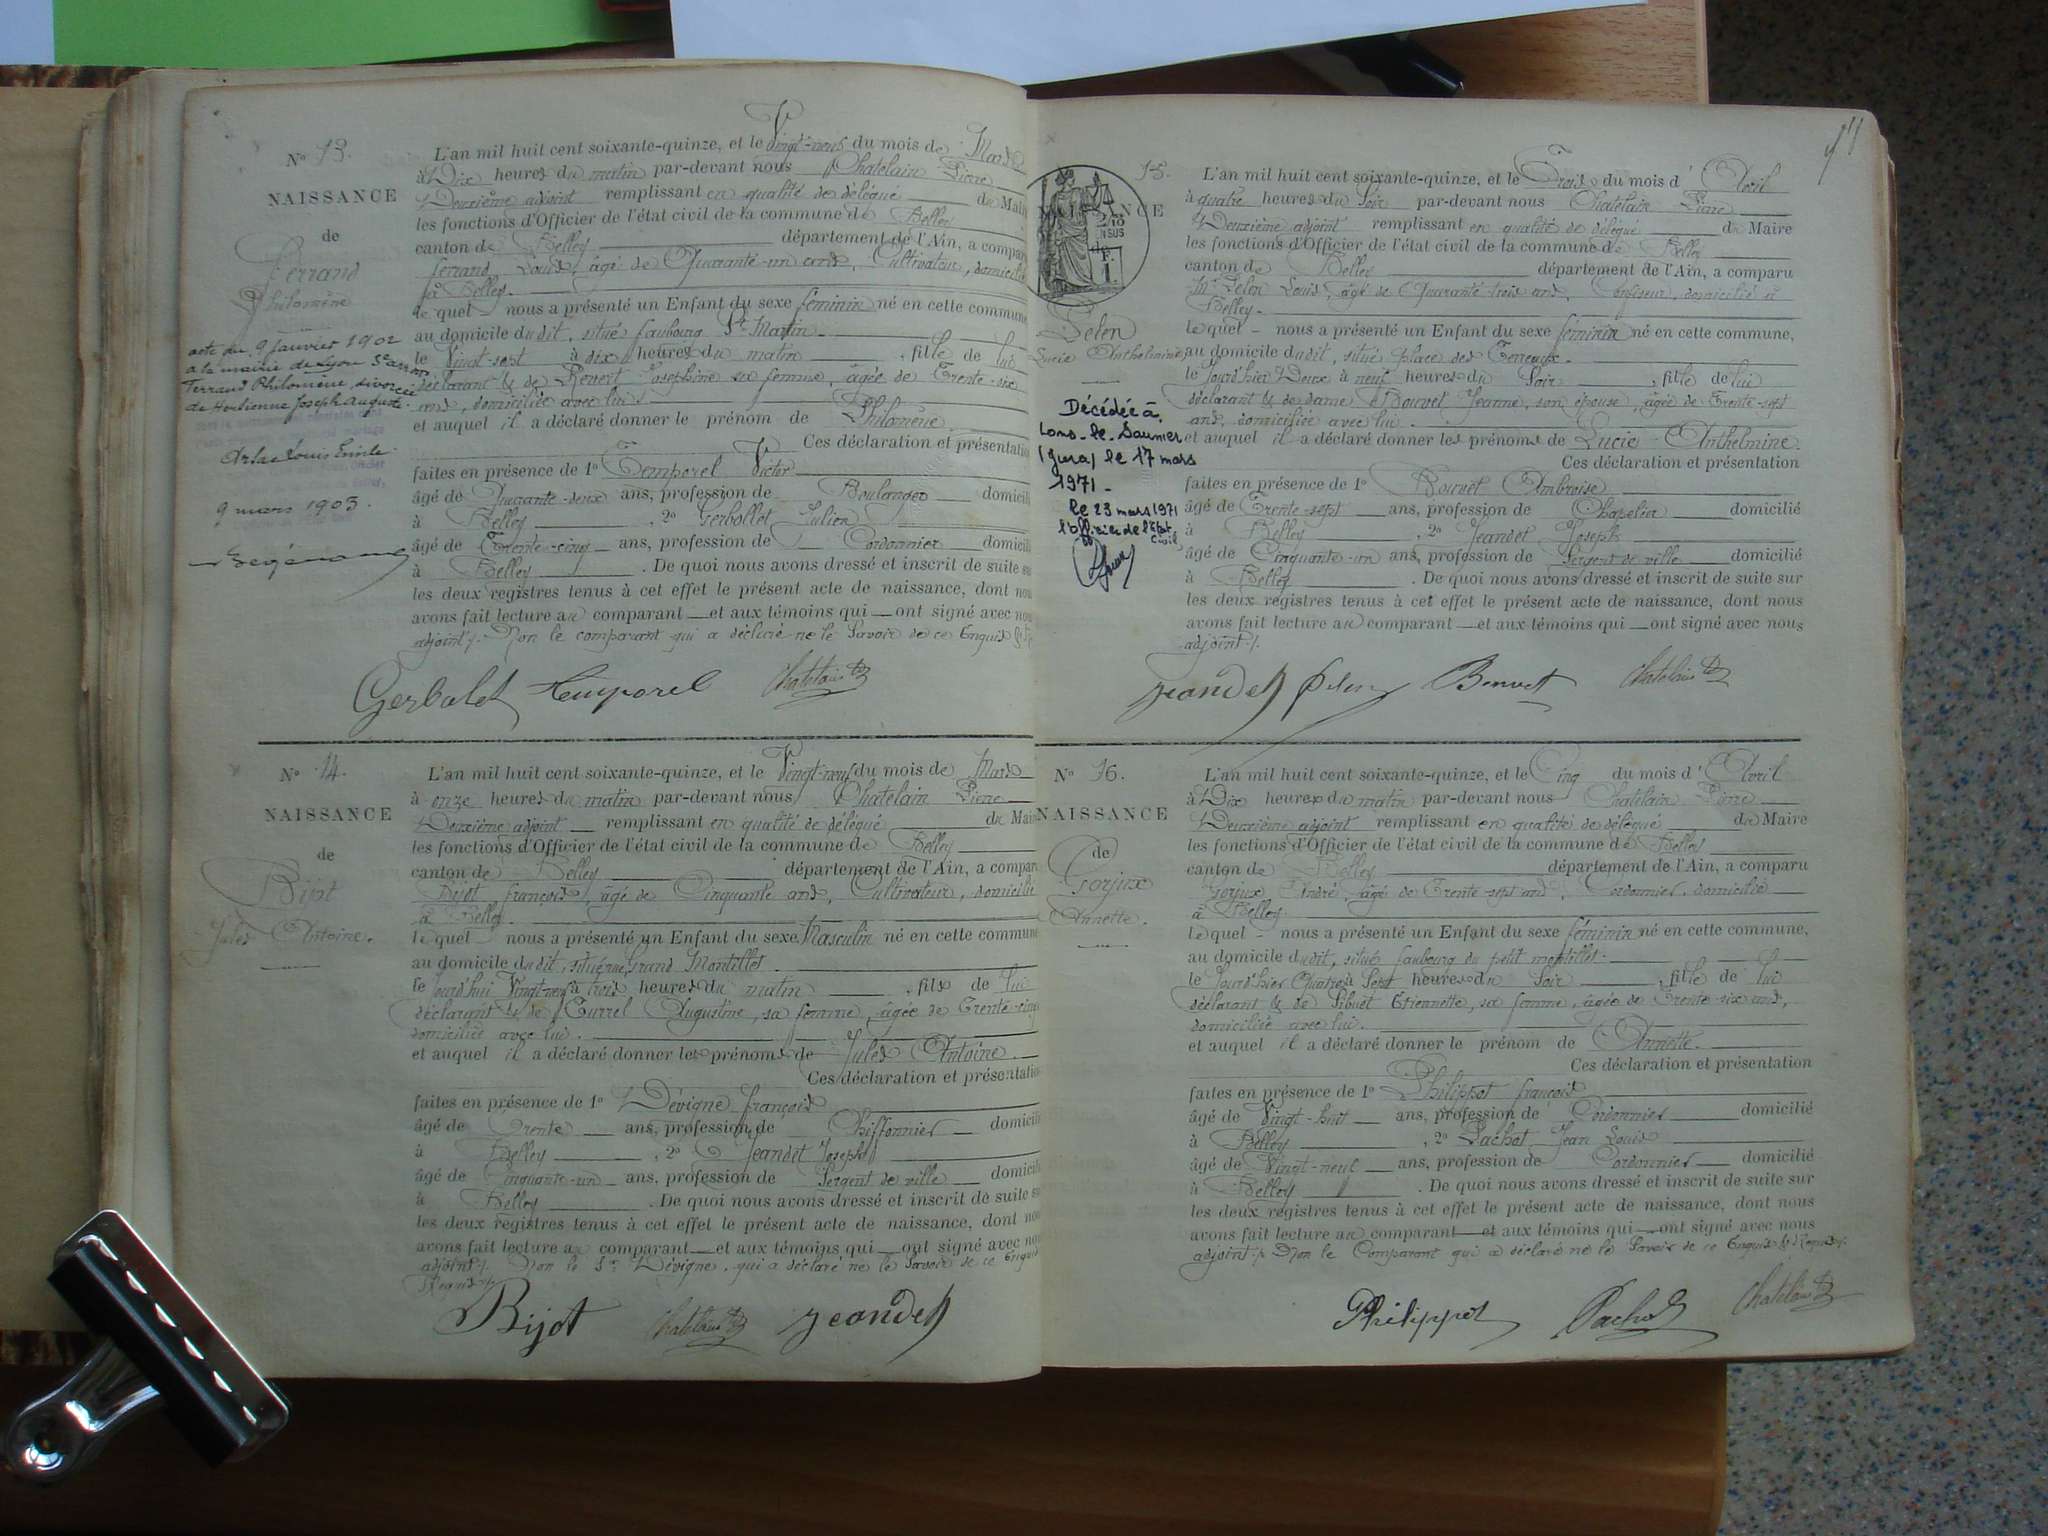 N° 13.
NAISSANCE
de
Ferrand
Philomène
acte du 9 janvier 1902
a la mairie de Lyon 3e arron
Ferrand Philomène divorcée
de Herbienne Joseph Auguste.
Louis Emile
9 mars 1903.
L'an mil huit cent soixante-quinze, et le Vingt-neuf du mois de Mars
à Dix heures du matin par-devant nous Chatelain Pierre
Deuxième adjoint remplissant en qualité de délégué du Maire
les fonctions d'Officier de l'état civil de la commune de Belley
canton de Belley département de l'Ain, a comparu
ferrand Louis, âgé de Quarante-un ans, Cultivateur, domicilié
à Belley.
lequel nous a présenté un Enfant du sexe féminin né en cette commune,
au domicile dudit, situé faubourg St Martin.
le Vingt-sept à dix heures du matin, fille de lui
déclarant & de Revert Josephine sa femme, âgée de Trente-six
ans, domiciliée avec lui.
et auquel il a déclaré donner le prénom de Philomène
Ces déclaration et présentation
faites en présence de 1° Temporel Victor
âgé de Quarante-deux ans, profession de Boulanger domicilié
à Belley, 2° Gerbollet Julien
âgé de Trente-cinq ans, profession de Cordonnier domicilié
à Belley. De quoi nous avons dressé et inscrit de suite sur
les deux registres tenus à cet effet le présent acte de naissance, dont nous
avons fait lecture au comparant et aux témoins qui ont signé avec nous
adjoint /. Non le comparant qui a déclaré ne le Savoir de ce Enquis &
Gerbolet Temporel Chatelain
N° 14.
NAISSANCE
de
Bijot
Jules Antoine.
L'an mil huit cent soixante-quinze, et le Vingt-neuf du mois de Mars
à onze heures du matin par-devant nous Chatelain Pierre
Deuxième adjoint remplissant en qualité de délégué du Maire
les fonctions d'Officier de l'état civil de la commune de Belley
canton de Belley département de l'Ain, a comparu
Bijot françois, âgé de Cinquante ans, Cultivateur, domicilié
à Belley.
lequel nous a présenté un Enfant du sexe Masculin né en cette commune
au domicile dudit, situé rue Grand Montillet.
le jourd'hui Vingt-neuf à trois heures du matin, fils de lui
déclarant & de Turrel Augustine, sa femme, âgée de Trente-cinq
domiciliée avec lui.
et auquel il a déclaré donner les prénoms de Jules Antoine.
Ces déclaration et présentation
faites en présence de 1° Dévigne françois
âgé de Trente ans, profession de Chiffonnier domicilié
à Belley, 2° Jeandet Joseph
âgé de Cinquante-un ans, profession de Sergent de ville domicilié
à Belley. De quoi nous avons dressé et inscrit de suite sur
les deux registres tenus à cet effet le présent acte de naissance, dont nous
avons fait lecture au comparant et aux témoins qui ont signé avec nous
adjoint /. Non le Sr Dévigne, qui a déclaré ne le Savoir de ce Enquis
Bijot Chatelain Jeandet
15.
NAISSANCE
2/10
EN SUS
F.
1.
Pelen
Lucie Anthelmine,
Décédée à
Lons-le-Saunier
(Jura) le 17 mars
1971-
le 23 mars 1971
l'officier de l'Etat
Civil
L'an mil huit cent soixante-quinze, et le Trois du mois d'Avril
à quatre heures du Soir par-devant nous Chatelain Pierre
Deuxième adjoint remplissant en qualité de délégué du Maire
les fonctions d'Officier de l'état civil de la commune de Belley
canton de Belley département de l'Ain, a comparu
Mr Pelen Louis, âgé de Quarante trois ans, Confiseur, domicilié à
Belley.
lequel nous a présenté un Enfant du sexe féminin né en cette commune,
au domicile dudit, situé place des Terreaux.
le Jourd'hier Deux à neuf heures du Soir, fille de lui
déclarant & de dame Bouvet Jeanne, son épouse, âgée de Trente-sept
ans, domiciliée avec lui.
et auquel il a déclaré donner les prénoms de Lucie Anthelmine.
Ces déclaration et présentation
faites en présence de 1° Bouvet Ambroise
âgé de Trente-sept ans, profession de Chapelier domicilié
à Belley, 2° Jeandet Joseph
âgé de Cinquante-un ans, profession de Sergent de ville domicilié
à Belley. De quoi nous avons dressé et inscrit de suite sur
les deux registres tenus à cet effet le présent acte de naissance, dont nous
avons fait lecture au comparant et aux témoins qui ont signé avec nous
adjoint /.
Jeandet Pelen Bouvet Chatelain
N° 16.
NAISSANCE
de
Gorjux
Annette.
L'an mil huit cent soixante-quinze, et le Cinq du mois d'Avril
à Dix heures du matin par-devant nous Chatelain Pierre
Deuxième adjoint remplissant en qualité de délégué du Maire
les fonctions d'Officier de l'état civil de la commune de Belley
canton de Belley département de l'Ain, a comparu
Gorjux André, âgé de Trente-sept ans, Cordonnier, domicilié
à Belley
lequel nous a présenté un Enfant du sexe féminin né en cette commune,
au domicile dudit, situé faubourg du petit montillet.
le Jourd'hier Quatre à Sept heures du Soir, fille de lui
déclarant & de Sibuet Etiennette, sa femme, âgée de Trente-six ans,
domiciliée avec lui.
et auquel il a déclaré donner le prénom de Annette.
Ces déclaration et présentation
faites en présence de 1° Philippot françois
âgé de Vingt-huit ans, profession de Cordonnier domicilié
à Belley, 2° Pachot Jean Louis
âgé de Vingt-neuf ans, profession de Cordonnier domicilié
à Belley. De quoi nous avons dressé et inscrit de suite sur
les deux registres tenus à cet effet le présent acte de naissance, dont nous
avons fait lecture au comparant et aux témoins qui ont signé avec nous
adjoint /. Non le Comparant qui a déclaré ne le Savoir de ce Enquis & Requis /.
Philippot Pachot Chatelain